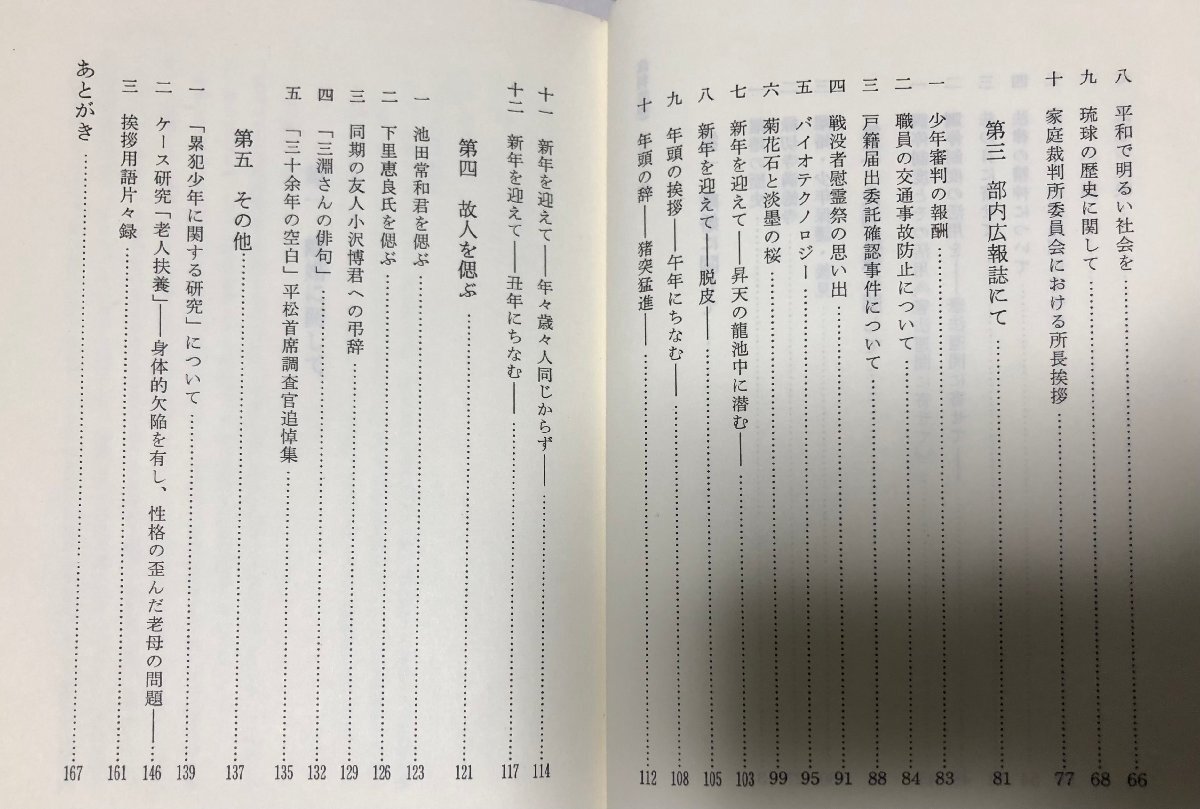 八 平和で明るい社会を……66
九 琉球の歴史に関して……68
十 家庭裁判所委員会における所長挨拶……77
第三 部内広報誌にて……81
一 少年審判の報酬……83
二 職員の交通事故防止について……84
三 戸籍届出委託確認事件について……88
四 戦没者慰霊祭の思い出……91
五 バイオテクノロジー……95
六 菊花石と淡墨の桜……99
七 新年を迎えて――昇天の龍池中に潜む――……103
八 新年を迎えて――脱皮――……105
九 年頭の挨拶――午年にちなむ――……108
十 年頭の辞――猪突猛進――……112
十一 新年を迎えて――年々歳々人同じからず――……114
十二 新年を迎えて――丑年にちなむ――……117
第四 故人を偲ぶ……121
一 池田常和君を偲ぶ……123
二 下里恵良氏を偲ぶ……126
三 同期の友人小沢博君への弔辞……129
四 「三淵さんの俳句」……132
五 「三十余年の空白」平松首席調査官追悼集……135
第五 その他……137
一 「累犯少年に関する研究」について……139
二 ケース研究「老人扶養」――身体的欠陥を有し、性格の歪んだ老母の問題――……146
三 挨拶用語片々録……161
あとがき……167